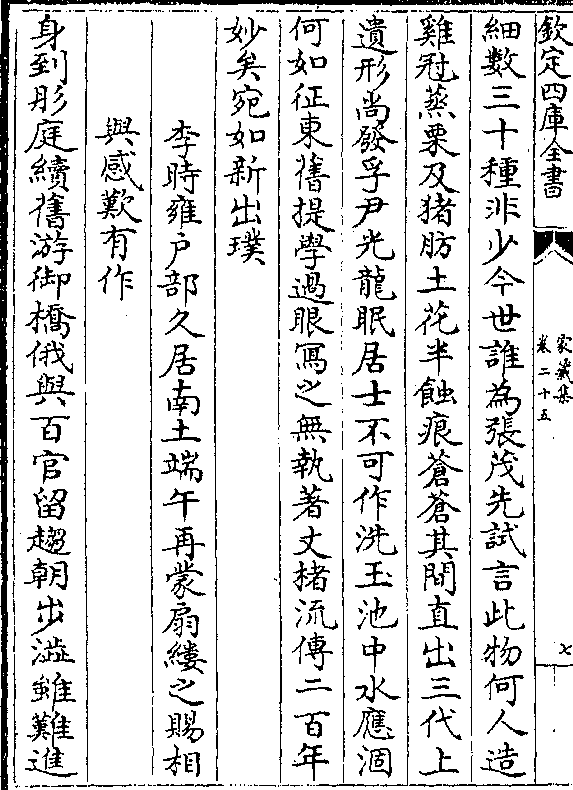 欽定四庫全書
家藏集
卷二十五
七
細數三十種非少今世誰為張茂先試言此物何人造
雞冠蒸栗及猪肪土花半蝕痕蒼蒼其間直出三代上
遺形尚發孚尹光龍眠居士不可作洗玉池中水應涸
何如征東舊提學過眼寫之無執著丈楮流傳二百年
妙矣宛如新出璞
李時雍户部久居南土端午再蒙扇縷之賜相
與感歎有作
身到彤庭續舊游御橋俄與百官留趨朝步澁雖難進